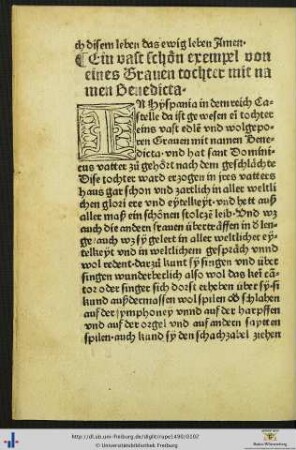 ch disem leben das ewig leben Amen.
¶ Ein vast schön exempel von
eines Grauen tochter mit na
men Benedicta.
IN Hyspania in dem reich Ca-
stelle da ist gewesen ein tochter
eins vast edlē vnd wolgepo-
ren Grauen mit namen Bene-
dicta. vnd hat sant Domini-
cus vatter zů gehört nach dem geschlächte
Dise tochter ward erzogen in jres vatters
haus gar schon vnd zartlich in aller weltli
chen glori ere vnd eytelkeyt. vnd hett auß
aller maß ein schönen stolczē leib. Vnd wz
auch die andern frauen überträffen in ð len-
ge. auch wz sy gelert in aller weltlicher ey-
telkeyt vnd in weltlichem gespräch vnnd
wol redent. darzů kunt sy singen vnd über
singen wunderberlich also wol das kei cā-
tor oder singer sich dorst erheben über sy. si
kund außdermassen wol spilen oð schlahen
auf der symphoney vnnd auf der harpffen
vnd auf der orgel vnd auf andern saytten
spilen. auch kund sy den schachzabel ziehen
http://dl.ub.uni-freiburg.de/diglit/rupe1490/0102
© Universitätsbibliothek Freiburg
Baden-Württemberg